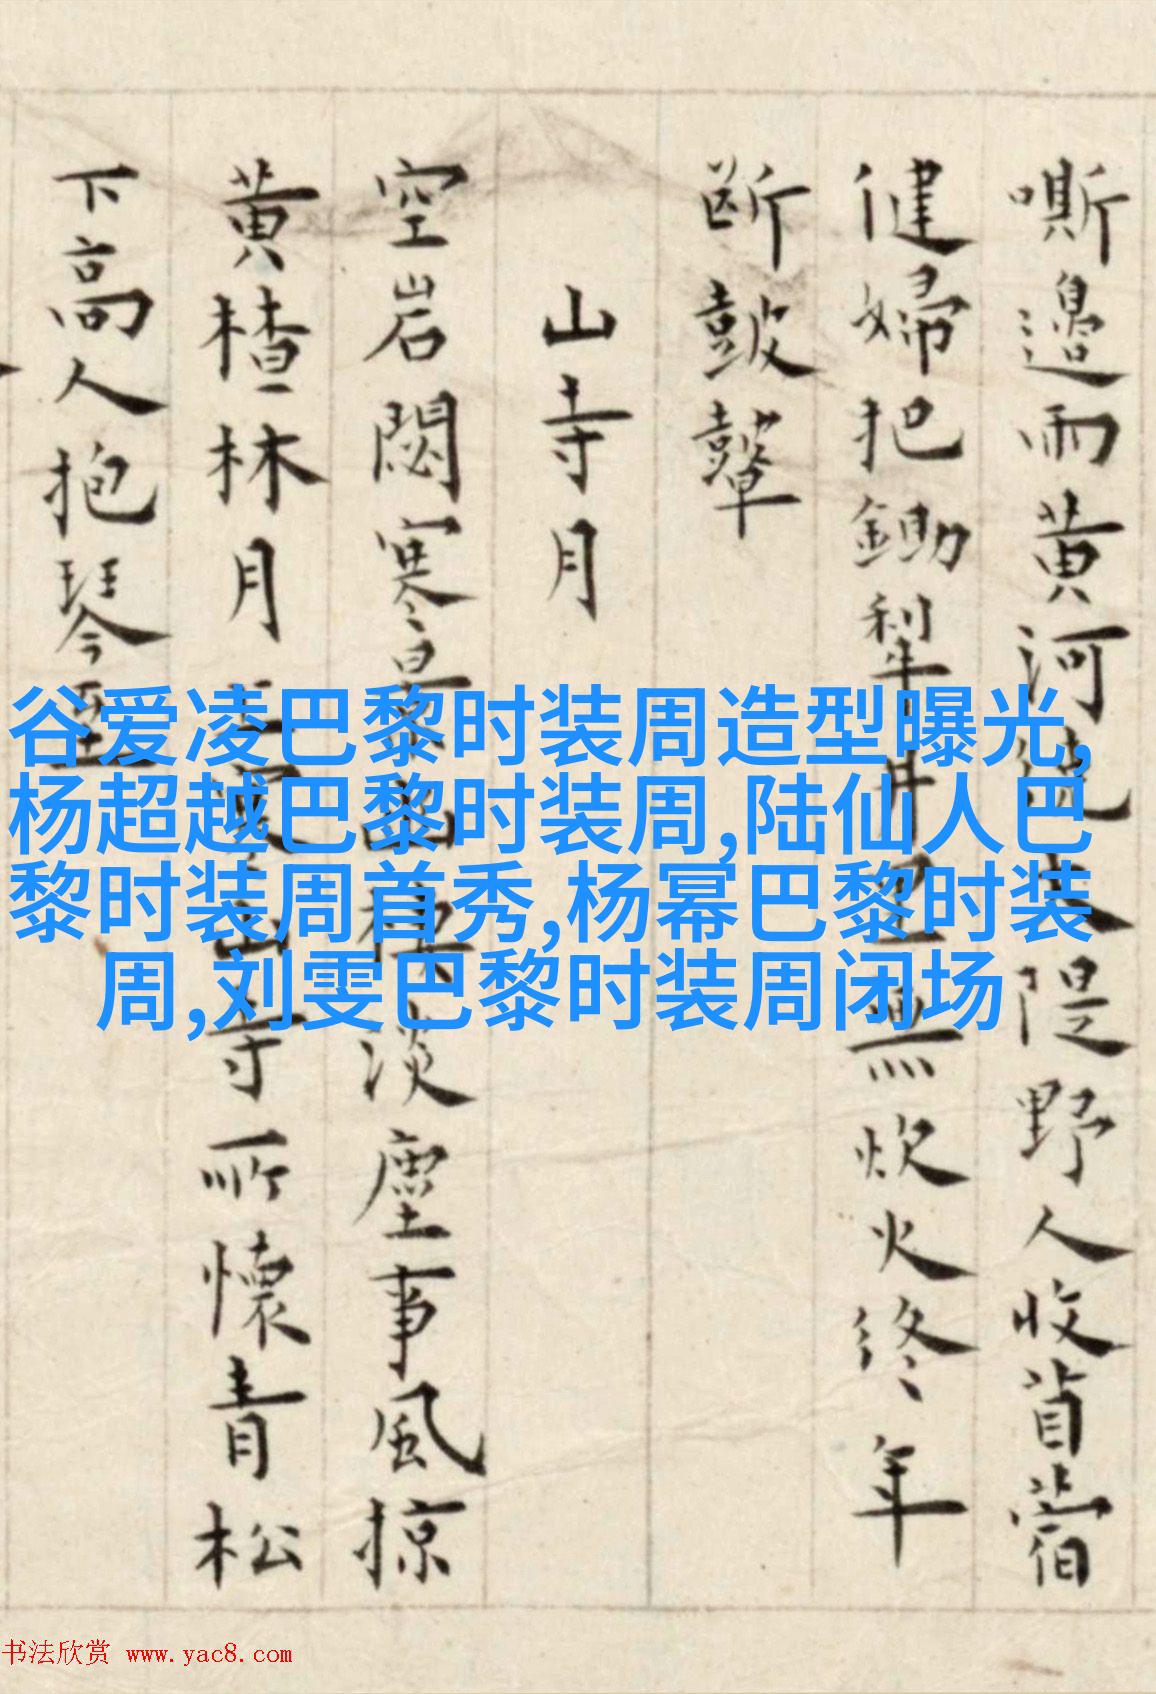 嘶邊雨黃河隄野人收苜蓿
健婦把鋤犁井無炊火終年
斷鼓鼙
山寺月
空岩閟寒淡塵事風掠
黃楂林月山寺所懷青松
下高人抱琴至
谷爱凌巴黎时装周造型曝光,
杨超越巴黎时装周,陆仙人巴
黎时装周首秀,杨幂巴黎时装
周,刘雯巴黎时装周闭场
书法欣赏 www.yac8.com